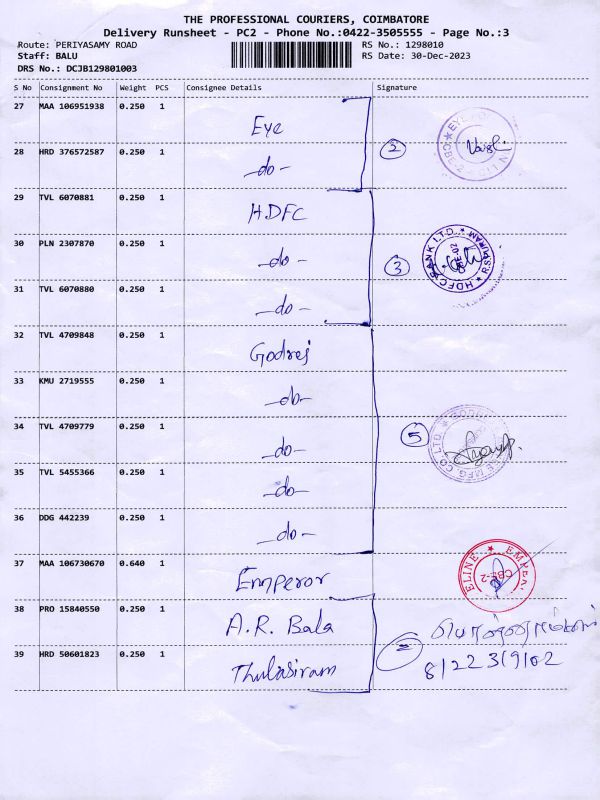 THE PROFESSIONAL COURIERS, COIMBATORE
Delivery Runsheet - PC2 - Phone No.:0422-3505555 - Page No.:3
Route: PERIYASAMY ROAD RS No.: 1298010
Staff: BALU RS Date: 30-Dec-2023
DRS No.: DCJB129801003
S No Consignment No Weight PCS Consignee Details Signature
27 MAA 106951938 0.250 1 Eye
28 HRD 376572587 0.250 1 -do- 2
29 TVL 6070881 0.250 1 H.DFC
30 PLN 2307870 0.250 1 -do- 3
HDFC BANK LTD. CBE-02
31 TVL 6070880 0.250 1 -do-
32 TVL 4709848 0.250 1 Godrej
33 KMU 2719555 0.250 1 -do-
34 TVL 4709779 0.250 1 -do- 5
35 TVL 5455366 0.250 1 -do-
36 DDG 442239 0.250 1 -do-
37 MAA 106730670 0.640 1 Emperor
CBE-2
38 PRO 15840550 0.250 1 A.R. Bala
39 HRD 50601823 0.250 1 Thulasiram 2